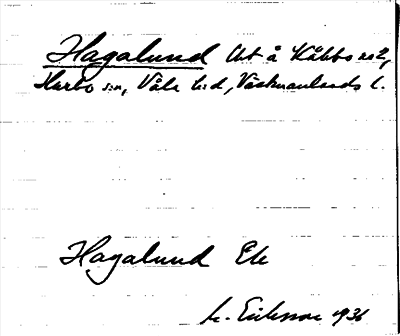 Hagalund Ut å Kåbbo nr 2,
Harbo s:n, Våla h:d, Västmanlands l.
Hagalund Ele
M. Eriksson 1936